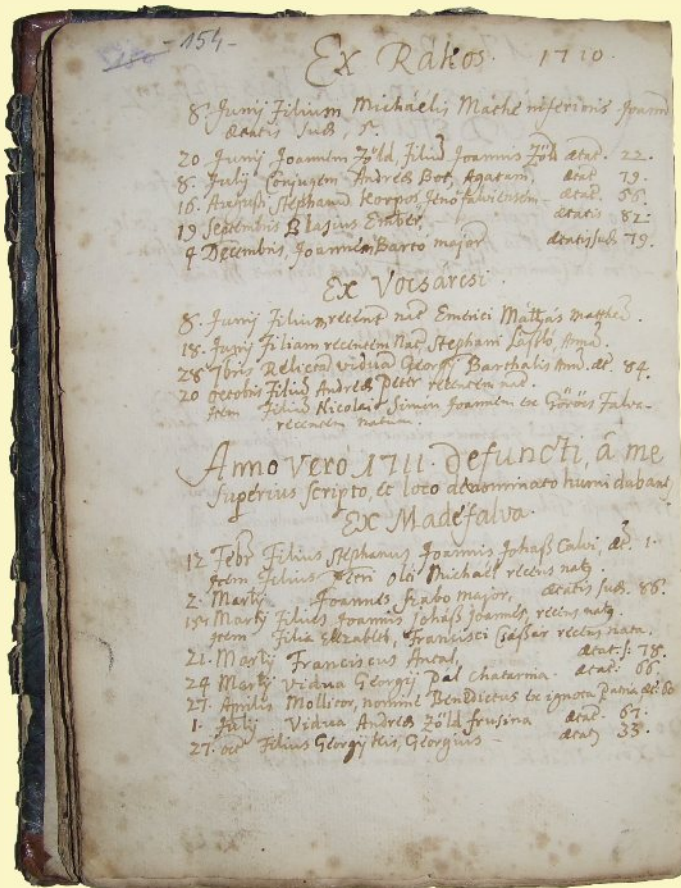 -154-
Ex Rákos. 1710.
8. Junij Filium Michaelis Mathé inferioris Joann
ætatis suæ, 5.
20 Junij Joannem Zöld, Filiū Joannis Zöld ætat. 22.
8. Julij Conjugem Andreæ Bot, Agatam, ætat 79.
16. Augusti Stephanū Korpos, Jenőfalviensem - ætat. 56.
19 Septembris Blasius Ember, ætatis 82.
4 Decembris, Joannem Barto major ætatis suæ 79.
Ex Vocsarcsi.
8. Junij Filium recens nat Emerici Mátjás Matthæū.
18. Junij Filiam recentem Nat, Stephani László, Annā.
28 7bris Relictā viduā Georgij Barthalis Annā. æt. 84.
20 octobris Filiū Andreæ Peter recentem nat.
Item Filiū Nicolai Simon Joannem ex Göröcs Falva
recentem natum.
Anno vero 1711. defuncti, â me
superius scripto, et loco determinato humi dabant
Ex Madéfalva.
12 Febr Filius Stephanus Joannis Johaß Calvi, æt. 1.
Item Filius Petri Olei Michaël recens natq.
2. Martij Joannes Szabo major, ætatis suæ. 86.
15. Martij Filius Joannis Joháß Joannes, recens natq.
Item Filia Elizabeth, Francisci Csáßár recens nata.
21. Martij Franciscus Antal, ætat. s: 78.
24 Martij Vidua Georgij Pal Chatarina. ætat: 66.
27. Aprilis Mollitor, nomine Benedictus ex ignota Patria æt: 60
1. Julij Vidua Andreæ Zöld frusina ætat. 67.
27. oct Filius Georgij Kis, Georgius - ætatq 33.